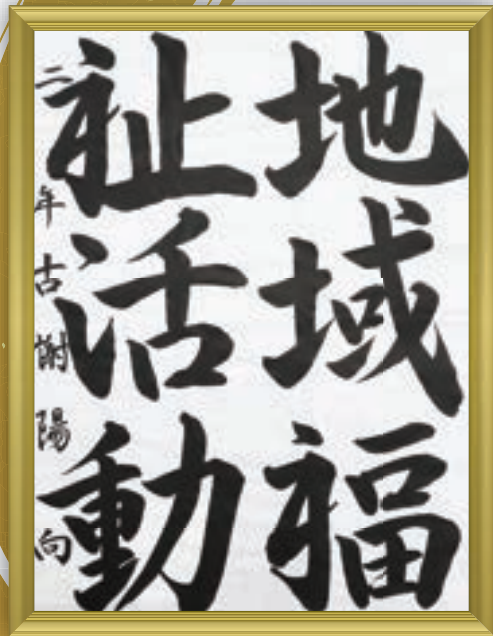 地域福
祉活動
二年 古謝陽向